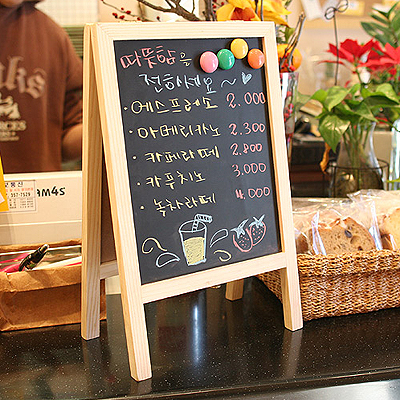 따뜻함을
전하세요~
· 에스프레소 2.000
· 아메리카노 2.300
· 카페라떼 2.800
· 카푸치노 3.000
· 녹차라떼 4.000
AM4S
357-7529